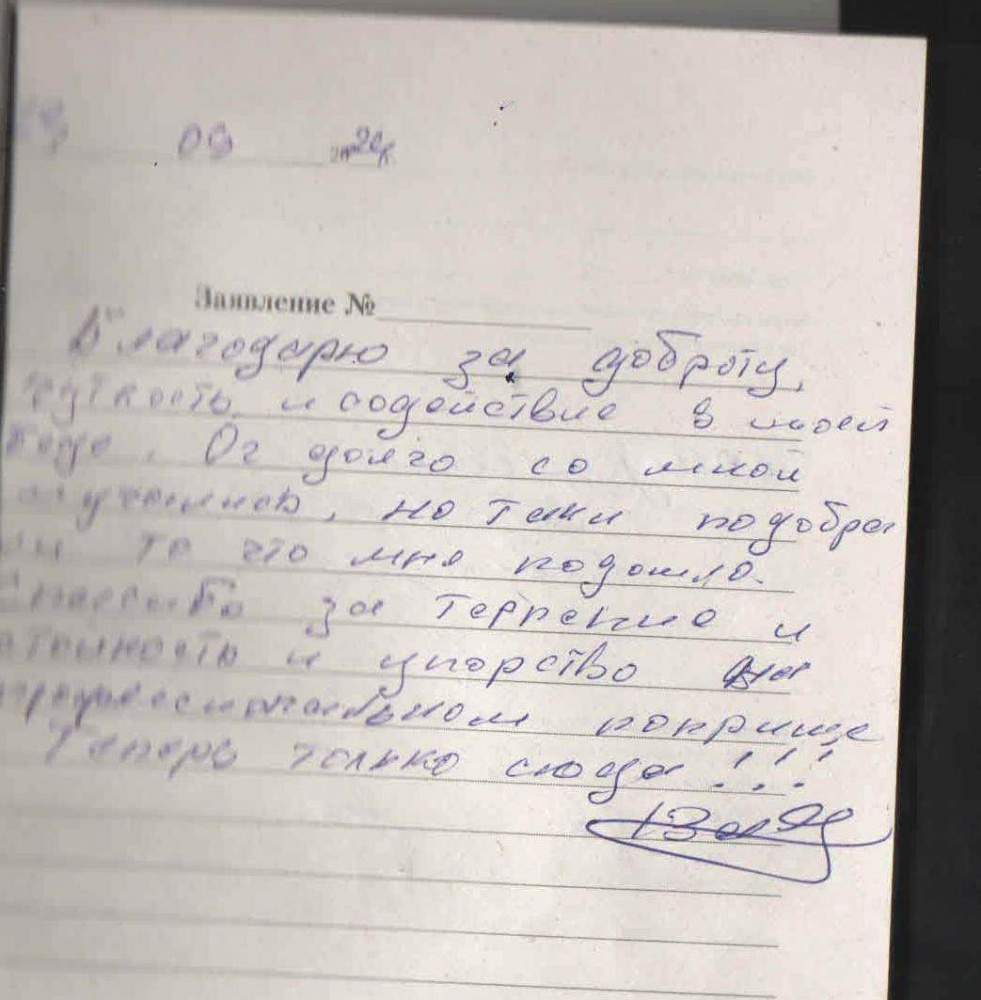 09 20
Заявление №
Благодарю за доброту,
чуткость и содействие в моей
беде. Ог долго со мной
но таки подобра
ли то что мня подошло.
Спасибо за терпение и
и упорство на
профессиональном поприще
Теперь только сюда!!!